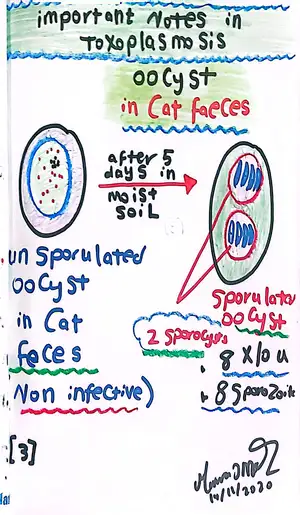 important Notes in
Toxoplasmosis
oocyst
in Cat faeces
after 5
days in
moist
soil
unsporulated
oocyst
in Cat
feces
Non infective)
2 sporocysts
sporulated
oocyst
8 x10 u
8 Sporozoite
[3]
14/11/2020